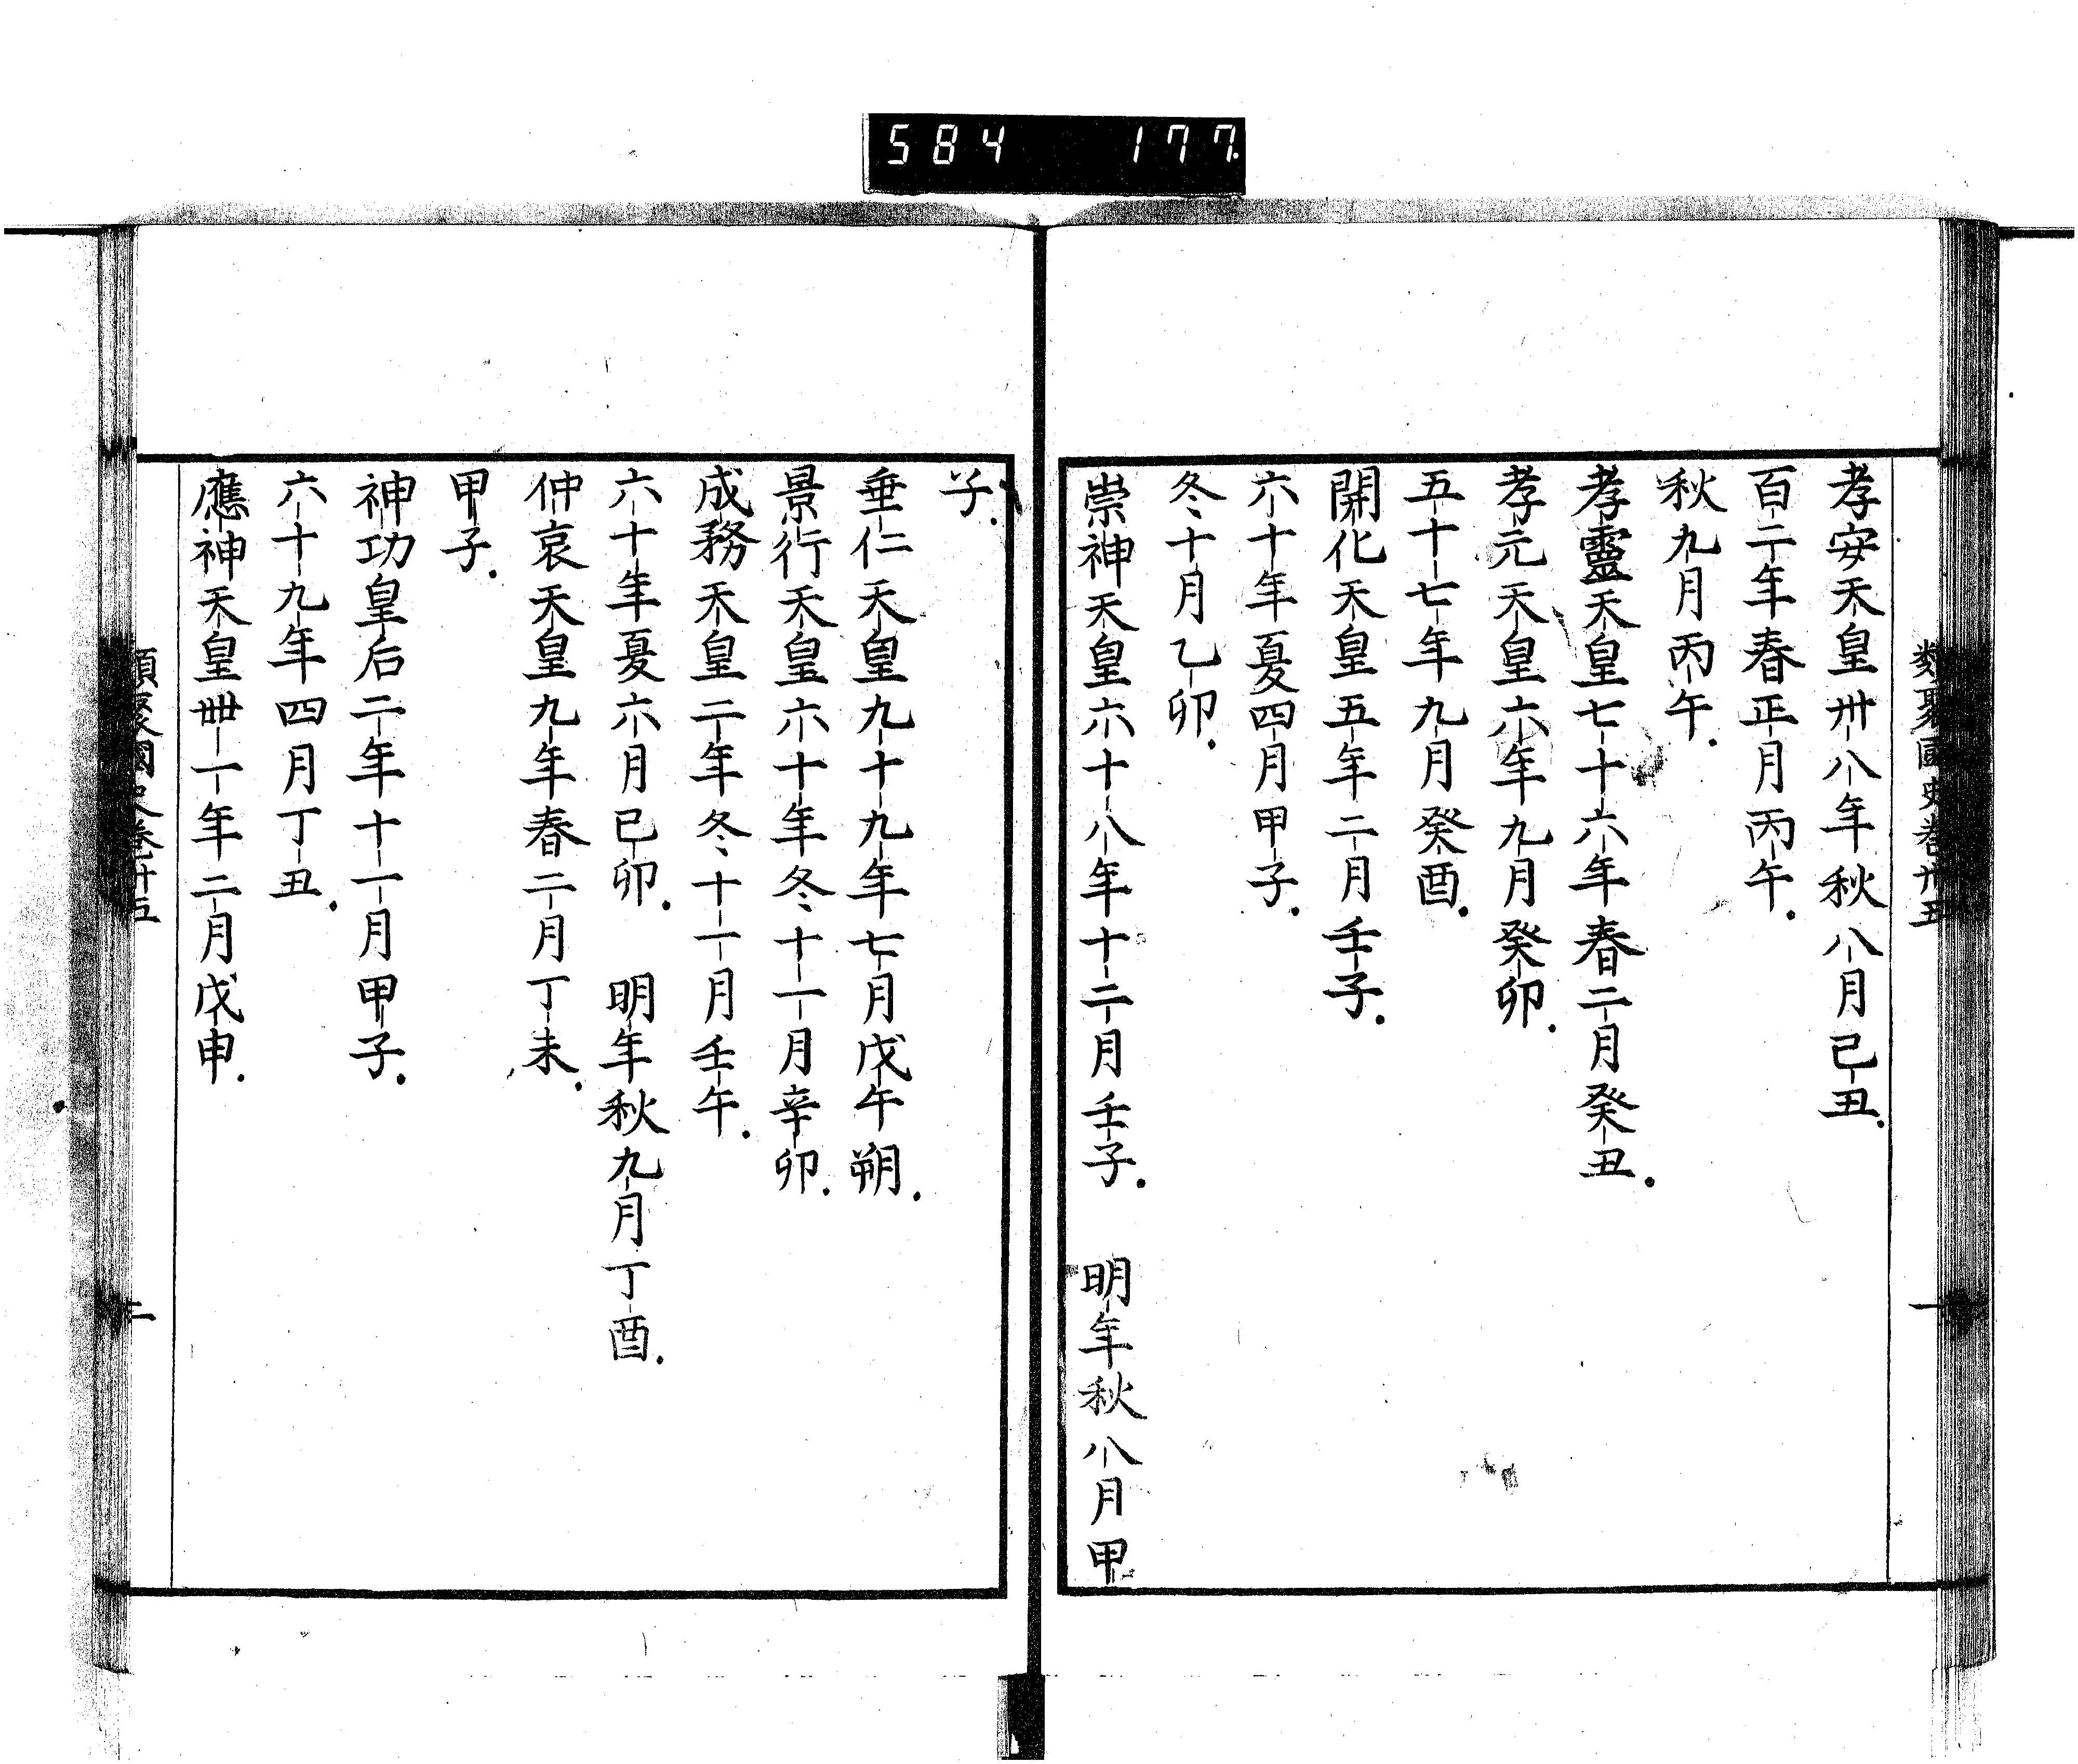 584 177
類聚國史卷卅五
一
孝安天皇卅八年秋八月己丑.
百二年春正月丙午.
秋九月丙午.
孝靈天皇七十六年春二月癸丑.
孝元天皇六年九月癸卯.
五十七年九月癸酉.
開化天皇五年二月壬子.
六十年夏四月甲子.
冬十月乙卯.
崇神天皇六十八年十二月壬子. 明年秋八月甲
子.
垂仁天皇九十九年七月戊午朔.
景行天皇六十年冬十一月辛卯.
成務天皇二年冬十一月壬午.
六十年夏六月己卯. 明年秋九月丁酉.
仲哀天皇九年春二月丁未.
甲子.
神功皇后二年十一月甲子.
六十九年四月丁丑.
應神天皇卌一年二月戊申.
類聚國史卷卅五
二